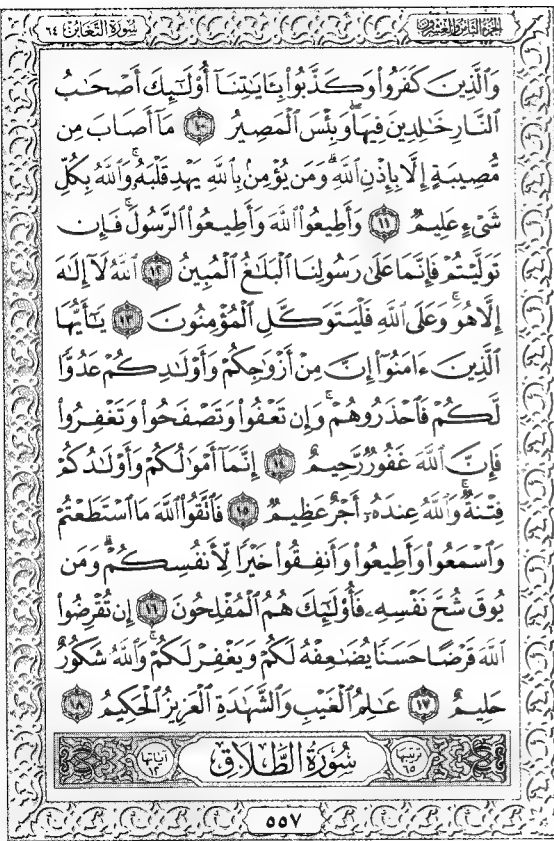 الجزء الثامن والعشرون سورة التغابن ٦٤
وَٱلَّذِينَ كَفَرُوا۟ وَكَذَّبُوا۟ بِـَٔايَـٰتِنَآ أُو۟لَـٰٓئِكَ أَصْحَـٰبُ
ٱلنَّارِ خَـٰلِدِينَ فِيهَا ۖ وَبِئْسَ ٱلْمَصِيرُ ١٠ مَآ أَصَابَ مِن
مُّصِيبَةٍ إِلَّا بِإِذْنِ ٱللَّهِ ۗ وَمَن يُؤْمِنۢ بِٱللَّهِ يَهْدِ قَلْبَهُۥ ۚ وَٱللَّهُ بِكُلِّ
شَىْءٍ عَلِيمٌ ١١ وَأَطِيعُوا۟ ٱللَّهَ وَأَطِيعُوا۟ ٱلرَّسُولَ ۚ فَإِن
تَوَلَّيْتُمْ فَإِنَّمَا عَلَىٰ رَسُولِنَا ٱلْبَلَـٰغُ ٱلْمُبِينُ ١٢ ٱللَّهُ لَآ إِلَـٰهَ
إِلَّا هُوَ ۚ وَعَلَى ٱللَّهِ فَلْيَتَوَكَّلِ ٱلْمُؤْمِنُونَ ١٣ يَـٰٓأَيُّهَا
ٱلَّذِينَ ءَامَنُوٓا۟ إِنَّ مِنْ أَزْوَٰجِكُمْ وَأَوْلَـٰدِكُمْ عَدُوًّا
لَّكُمْ فَٱحْذَرُوهُمْ ۚ وَإِن تَعْفُوا۟ وَتَصْفَحُوا۟ وَتَغْفِرُوا۟
فَإِنَّ ٱللَّهَ غَفُورٌ رَّحِيمٌ ١٤ إِنَّمَآ أَمْوَٰلُكُمْ وَأَوْلَـٰدُكُمْ
فِتْنَةٌ ۚ وَٱللَّهُ عِندَهُۥٓ أَجْرٌ عَظِيمٌ ١٥ فَٱتَّقُوا۟ ٱللَّهَ مَا ٱسْتَطَعْتُمْ
وَٱسْمَعُوا۟ وَأَطِيعُوا۟ وَأَنفِقُوا۟ خَيْرًا لِّأَنفُسِكُمْ ۗ وَمَن
يُوقَ شُحَّ نَفْسِهِۦ فَأُو۟لَـٰٓئِكَ هُمُ ٱلْمُفْلِحُونَ ١٦ إِن تُقْرِضُوا۟
ٱللَّهَ قَرْضًا حَسَنًا يُضَـٰعِفْهُ لَكُمْ وَيَغْفِرْ لَكُمْ ۚ وَٱللَّهُ شَكُورٌ
حَلِيمٌ ١٧ عَـٰلِمُ ٱلْغَيْبِ وَٱلشَّهَـٰدَةِ ٱلْعَزِيزُ ٱلْحَكِيمُ ١٨
ترتيبها ٦٥ سُورَةُ الطَّلَاقِ آياتها ١٢
٥٥٧